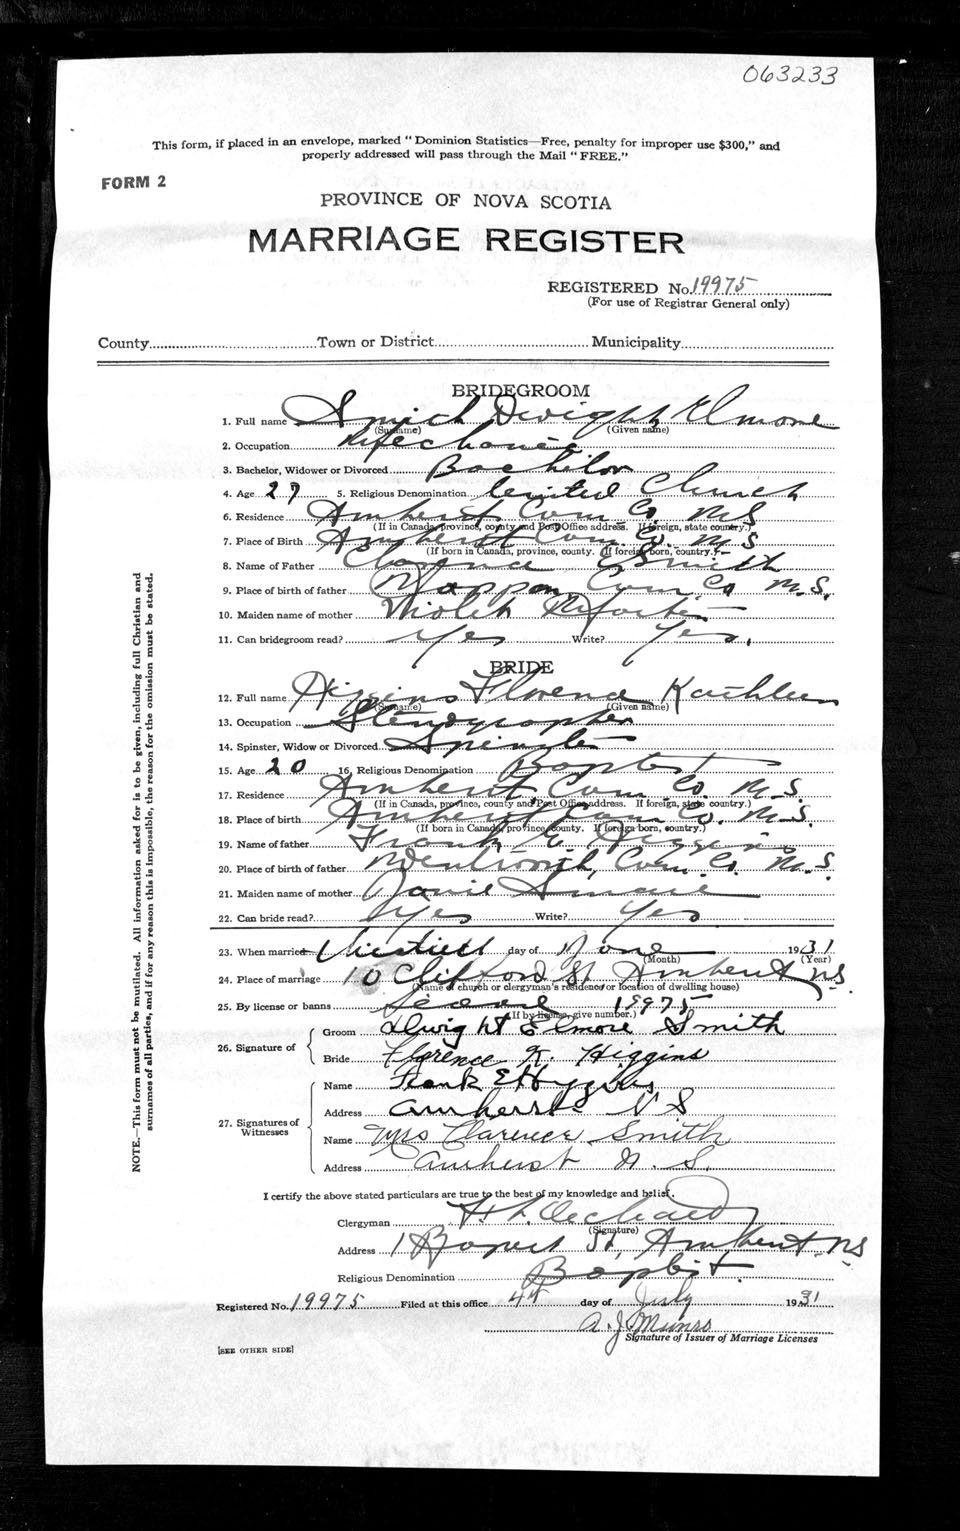 063233
This form, if placed in an envelope, marked "Dominion Statistics—Free, penalty for improper use $300," and
properly addressed will pass through the Mail "FREE."
FORM 2
PROVINCE OF NOVA SCOTIA
MARRIAGE REGISTER
REGISTERED No. 19975
(For use of Registrar General only)
County Town or District Municipality
BRIDEGROOM
1. Full name Smith Dwight Elmore
(Surname) (Given name)
2. Occupation Mechanic
3. Bachelor, Widower or Divorced Bachelor
4. Age 27 5. Religious Denomination United Church
6. Residence Amherst Cum. Co. N.S
(If in Canada, province, county and Post Office address. If foreign, state country.)
7. Place of Birth Amherst Cum. Co. N.S
(If born in Canada, province, county. If foreign born, country.)
8. Name of Father Clarence Smith
9. Place of birth of father Nappan Cum. Co N.S.
10. Maiden name of mother Violet
11. Can bridegroom read? Yes Write? Yes.
BRIDE
12. Full name Higgins Florence Kathleen
(Surname) (Given name)
13. Occupation Stenographer
14. Spinster, Widow or Divorced Spinster
15. Age 20 16. Religious Denomination Baptist
17. Residence Amherst Cum. Co. N.S.
(If in Canada, province, county and Post Office address. If foreign, state country.)
18. Place of birth Amherst Cum Co. N.S.
(If born in Canada, province, county. If foreign born, country.)
19. Name of father Frank E. Higgins
20. Place of birth of father Wentworth, Cum. Co. N.S.
21. Maiden name of mother Janie
22. Can bride read? Yes Write? Yes
23. When married Thirtieth day of June 1931
(Month) (Year)
24. Place of marriage 10 Clifford St Amherst N.S.
(Name of church or clergyman's residence or location of dwelling house)
25. By license or banns License 19975
(If by license, give number.)
26. Signature of
Groom Dwight Elmore Smith
Bride Florence K. Higgins
27. Signatures of Witnesses
Name Frank E Higgins
Address Amherst N S
Name Mrs Clarence Smith
Address Amherst N. S.
I certify the above stated particulars are true to the best of my knowledge and belief.
Clergyman
(Signature)
Address St, Amherst NS
Religious Denomination Baptist.
Registered No. 19975 Filed at this office 4th day of July 1931
A. J. Munro
Signature of Issuer of Marriage Licenses
[SEE OTHER SIDE]
NOTE.—This form must not be mutilated. All information asked for is to be given, including full Christian and
surnames of all parties, and if for any reason this is impossible, the reason for the omission must be stated.